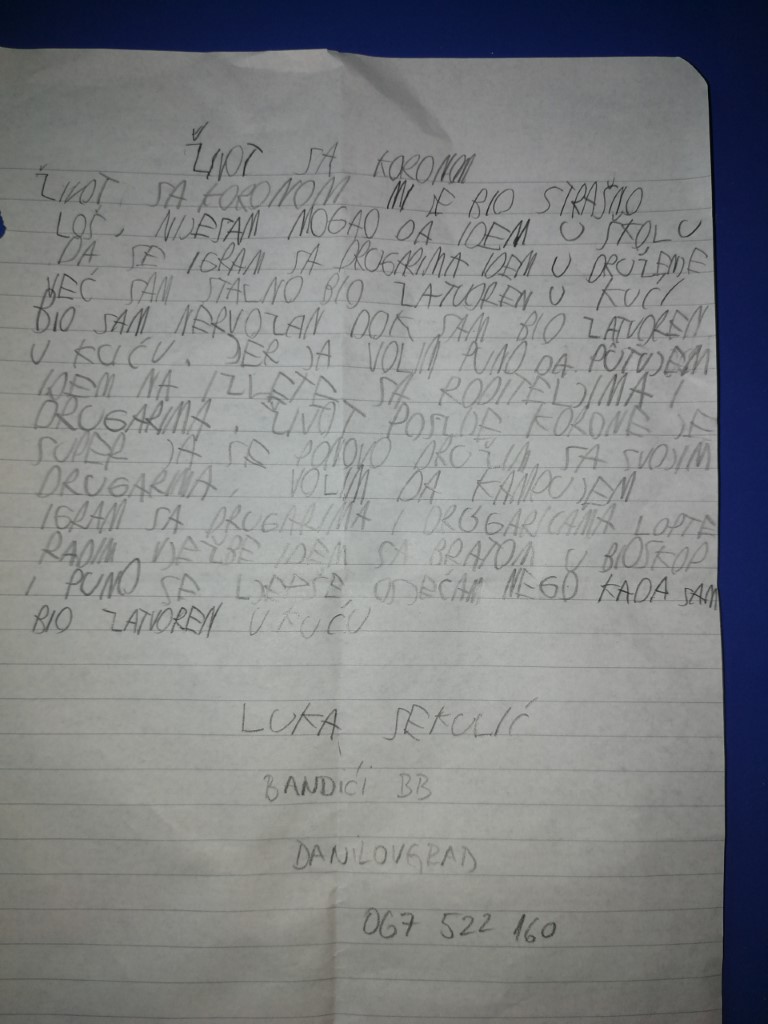 ŽIVOT SA KORONOM
ŽIVOT SA KORONOM MI JE BIO STRAŠNO
LOŠ. NIJESAM MOGAO DA IDEM U ŠKOLU
DA SE IGRAM SA DRUGARIMA IDEM U DRUŽENJE
VEĆ SAM STALNO BIO ZATVOREN U KUĆI
BIO SAM NERVOZAN DOK SAM BIO ZATVOREN
U KUĆU. JER JA VOLIM PUNO DA PUTUJEM
IDEM NA IZLETE SA RODITELJIMA I
DRUGARIMA. ŽIVOT POSLIJE KORONE JE
SUPER JA SE PONOVO DRUŽIM SA SVOJIM
DRUGARIMA. VOLIM DA KAMPUJEM
IGRAM SA DRUGARIMA I DRUGARICAMA LOPTE
RADIM VJEŽBE IDEM SA BRATOM U BIOSKOP
I PUNO SE LJEPŠE OSJEĆAM NEGO KADA SAM
BIO ZATVOREN U KUĆU
LUKA SEKULIĆ
BANDIĆI BB
DANILOVGRAD
067 522 160